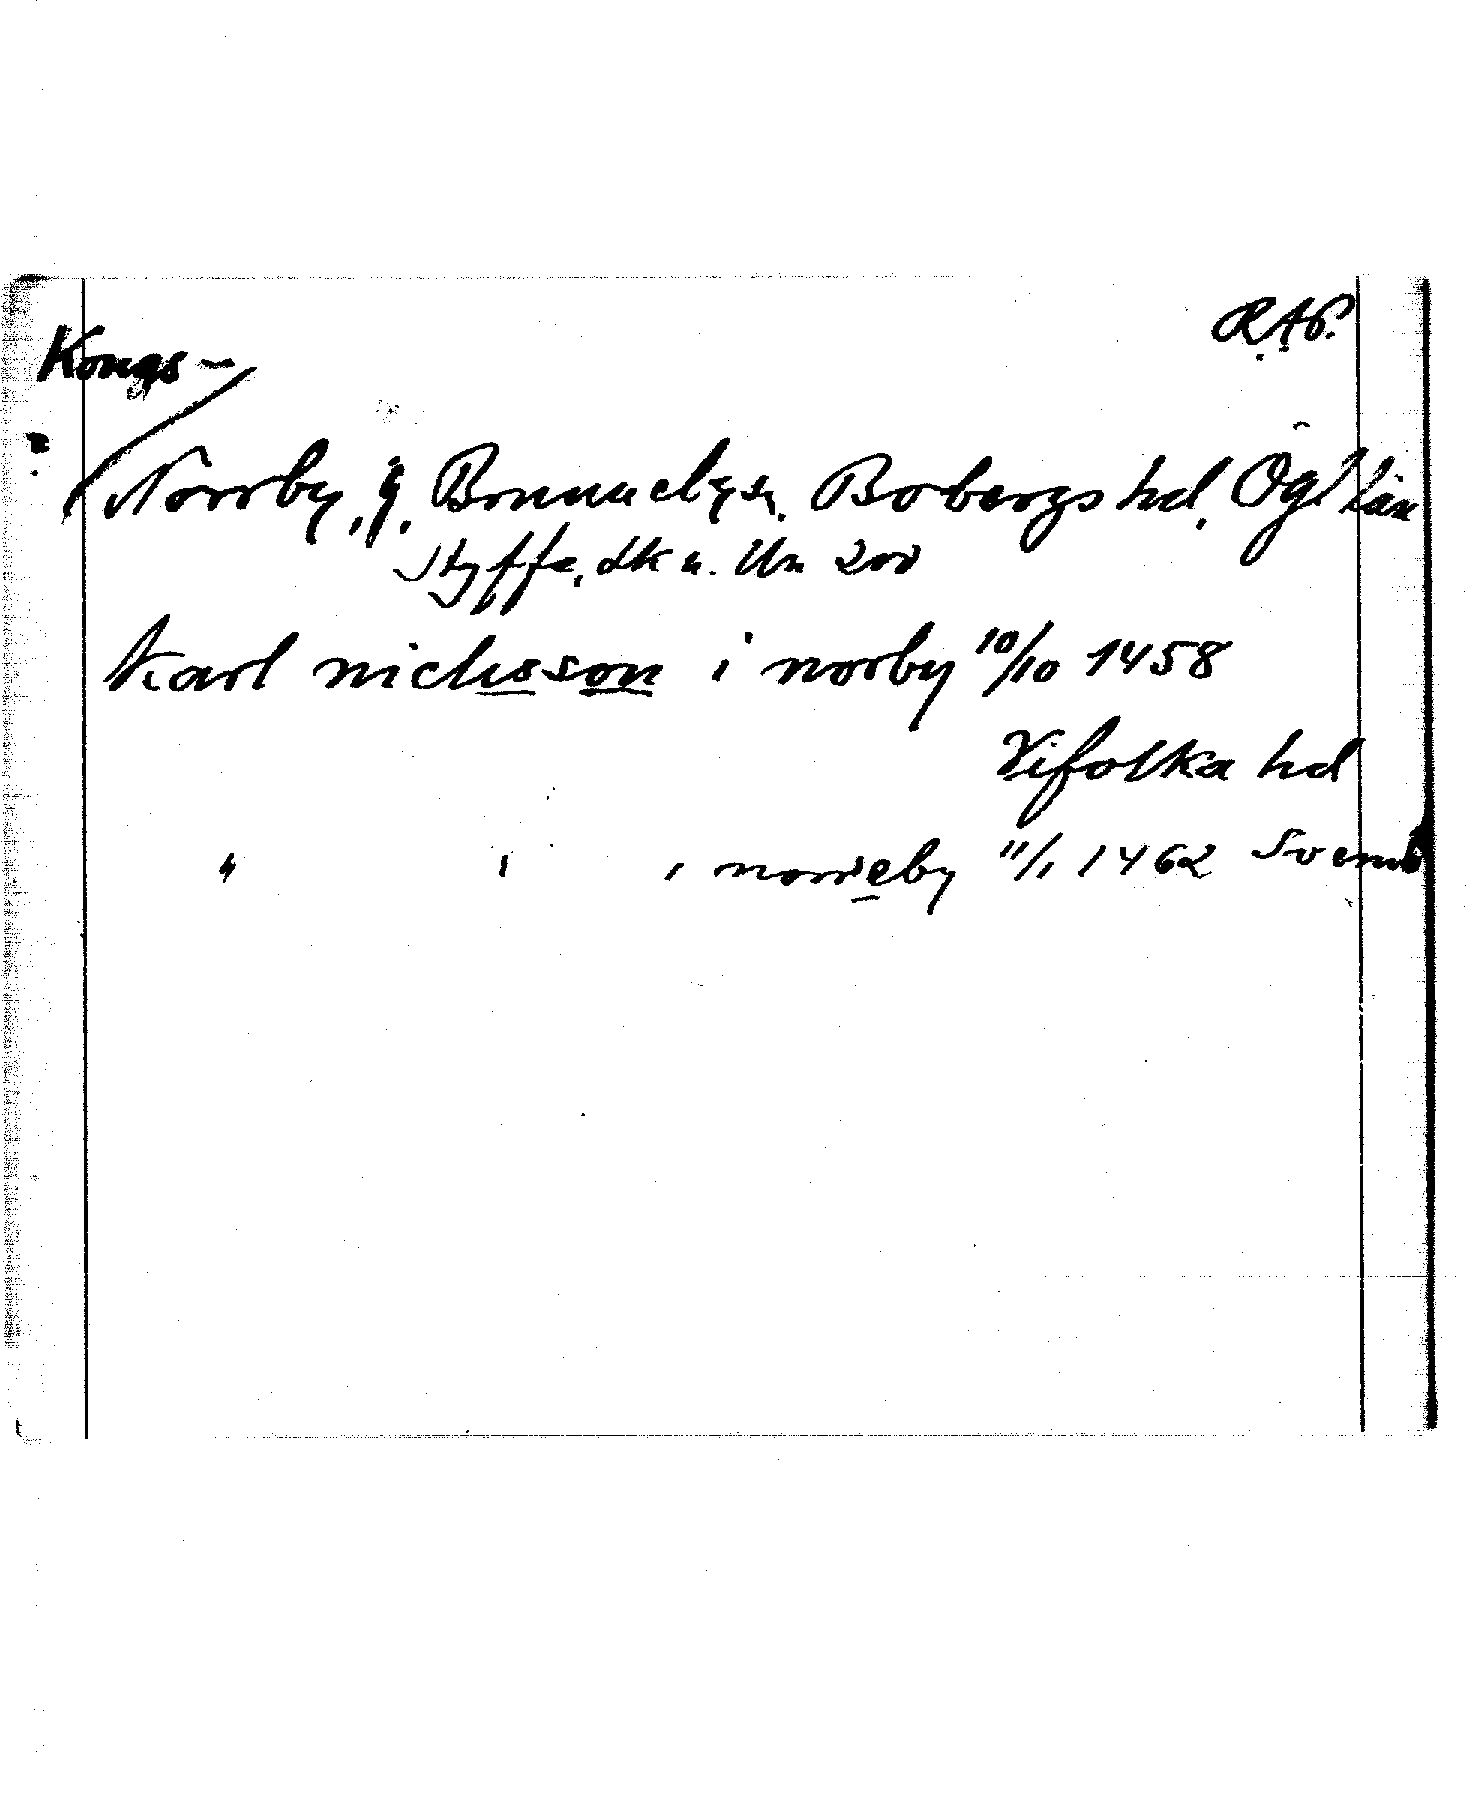 R.A.P.
Kongs-
Norrby, g. Brunneby sn. Bobergs hd, Ögl län
Styffe, sk u. Un 200
Karl niclisson i norby 10/10 1458
Vifolka hd
" " , norreby 11/1 1462